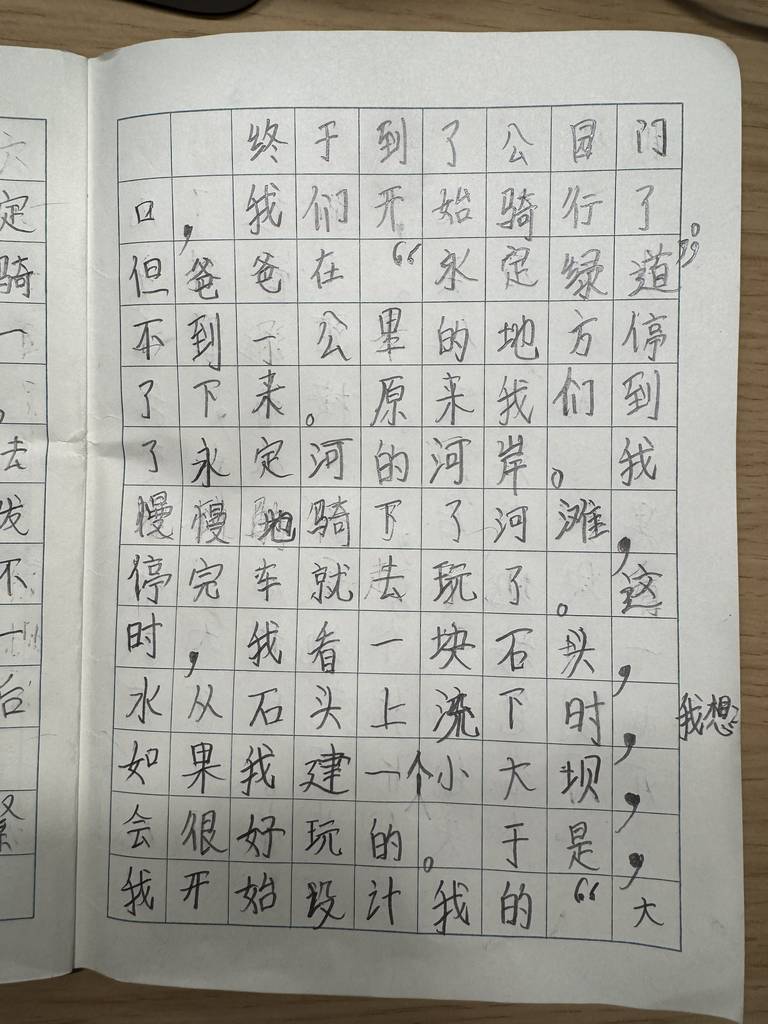 六
定
骑
一
。
去
发
不
一
后
终于到了公园门
口，我们开始骑行了。
但爸爸在“永定绿道”
不到一公里的地方停
了下来。原来我们到
了永定河的河岸。我
慢慢地骑下了河滩，
停完车就去玩了。这
时，我看一块石头，
水从石头上流下时，我想：
如果我建一个小大坝，
会很好玩的。于是，
我开始设计我的“大